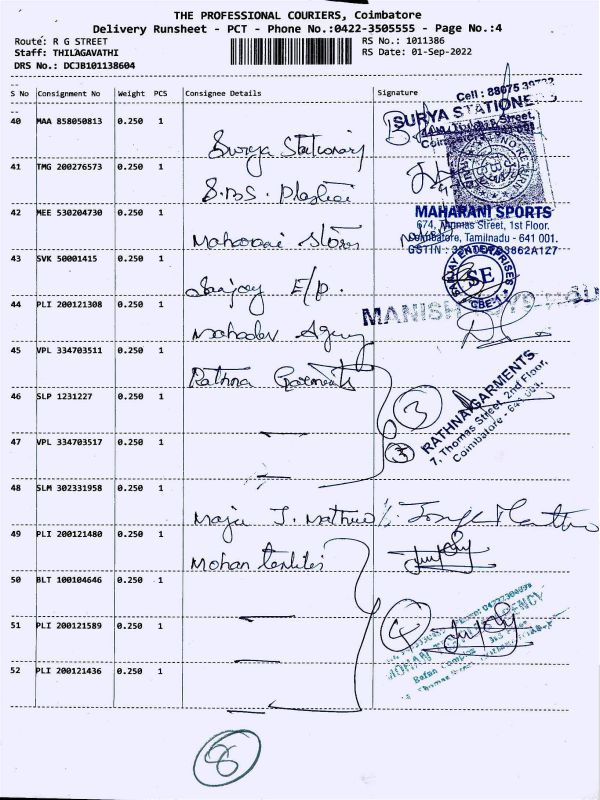 THE PROFESSIONAL COURIERS, Coimbatore
Delivery Runsheet - PCT - Phone No.:0422-3505555 - Page No.:4
Route: R G STREET
RS No.: 1011386
Staff: THILAGAVATHI
RS Date: 01-Sep-2022
DRS No.: DCJB101138604
S No Consignment No Weight PCS Consignee Details Signature
40 MAA 858050813 0.250 1 Surya Stationary
Cell : 88075
SURYA STATIONE
41 TMG 200276573 1 0.250 1 S.B.S. Plastic
42 MEE 530204730 0.250 1 Maharani Stores
MAHARANI SPORTS
674, Thomas Street, 1st Floor.
Coimbatore, Tamilnadu - 641 001.
43 SVK 50001415 0.250 1 Sanjay E/P.
SANJAY ENTERPRISES
SE
CBE-1
44 PLI 200121308 0.250 1 Mahadev Agency
MANISH
45 VPL 334703511 0.250 1 Rathna Garments
46 SLP 1231227 0.250 1
3
RATHNA GARMENTS
7, Thomas Street, 2nd Floor,
Coimbatore - 641 001.
47 VPL 334703517 0.250 1
3
48 SLM 302331958 0.250 1 Maju J. Mathew
49 PLI 200121480 0.250 1 Mohan textiles
50 BLT 100104646 0.250 1
51 PLI 200121589 0.250 1
4
52 PLI 200121436 0.250 1
8